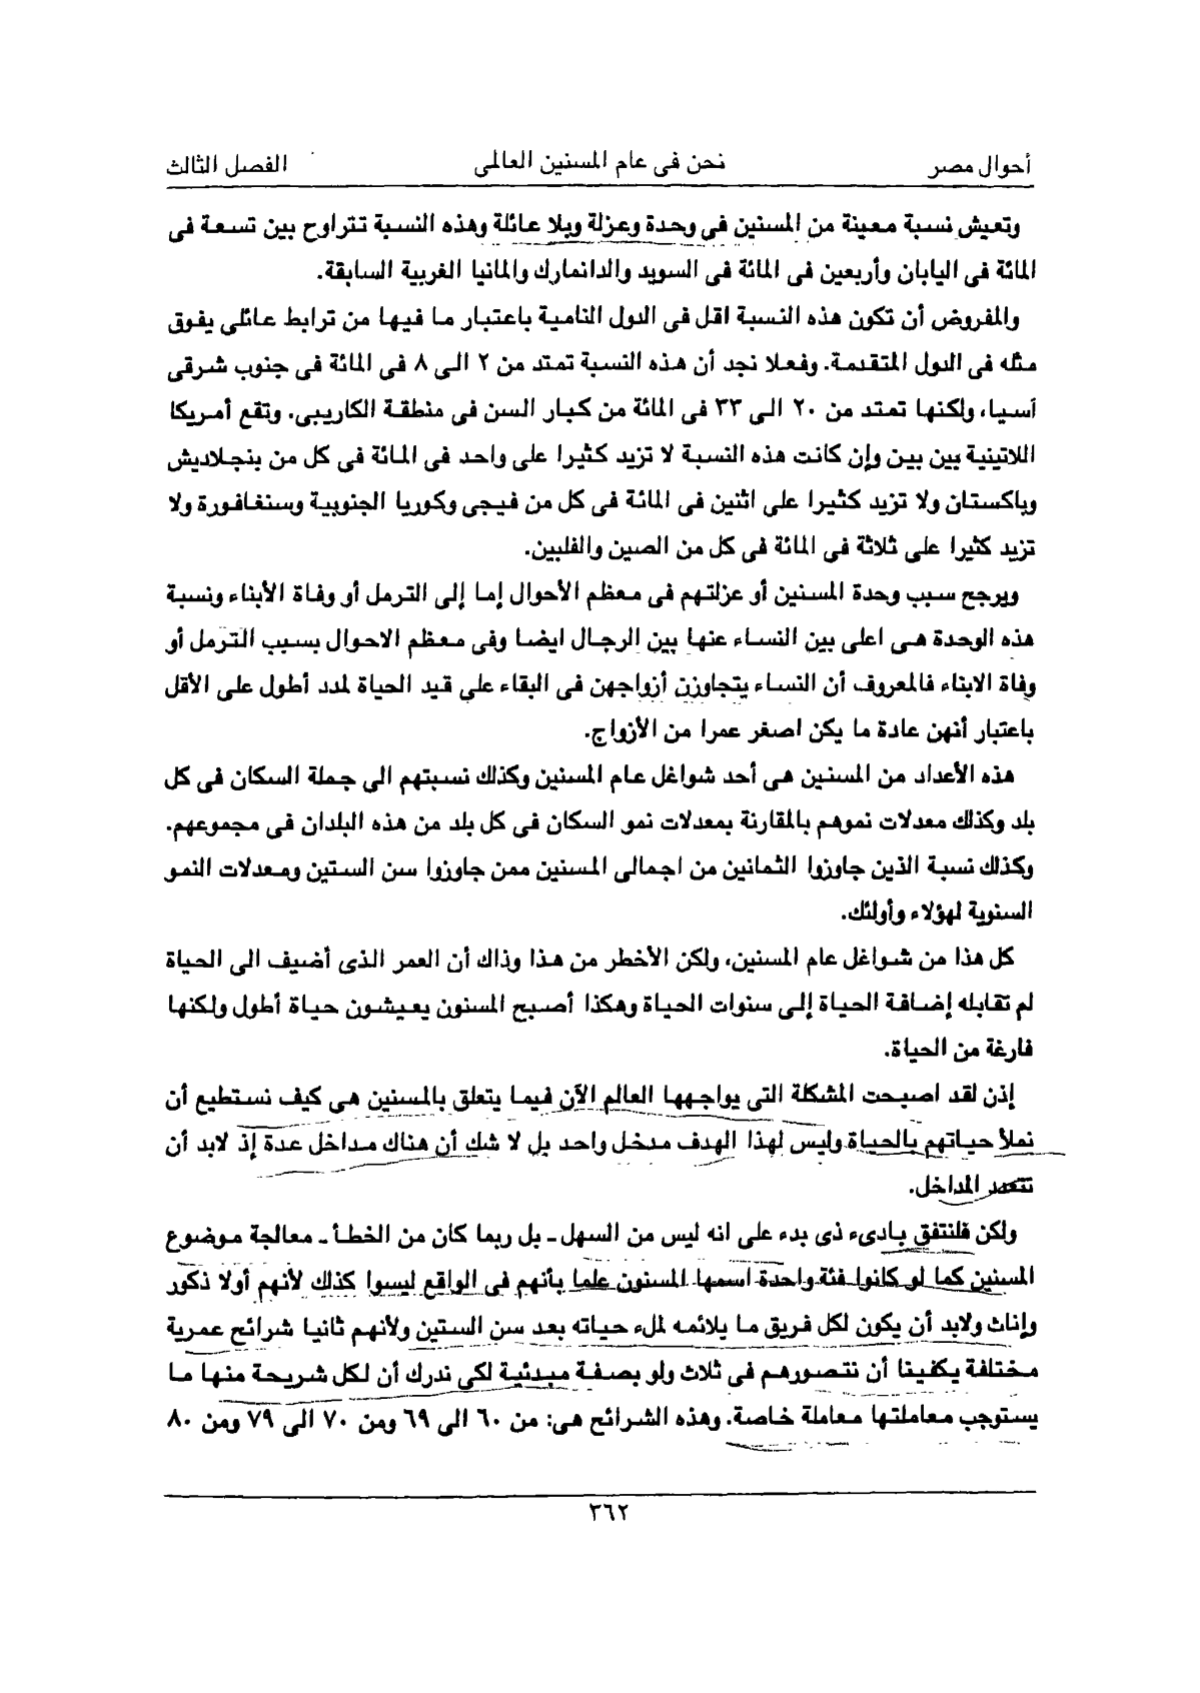 أحوال مصر نحن فى عام المسنين العالمى الفصل الثالث
وتعيش نسبة معينة من المسنين فى وحدة وعزلة وبلا عائلة وهذه النسبة تتراوح بين تسعة فى
المائة فى اليابان وأربعين فى المائة فى السويد والدانمارك والمانيا الغربية السابقة.
والمفروض أن تكون هذه النسبة اقل فى الدول النامية باعتبار ما فيها من ترابط عائلى يفوق
مثله فى الدول المتقدمة. وفعلا نجد أن هذه النسبة تمتد من ٢ الى ٨ فى المائة فى جنوب شرقى
آسيا، ولكنها تمتد من ٢٠ الى ٣٣ فى المائة من كبار السن فى منطقة الكاريبى. وتقع أمريكا
اللاتينية بين بين وإن كانت هذه النسبة لا تزيد كثيرا على واحد فى المائة فى كل من بنجلاديش
وباكستان ولا تزيد كثيرا على اثنين فى المائة فى كل من فيجى وكوريا الجنوبية وسنغافورة ولا
تزيد كثيرا على ثلاثة فى المائة فى كل من الصين والفلبين.
ويرجع سبب وحدة المسنين أو عزلتهم فى معظم الأحوال إما إلى الترمل أو وفاة الأبناء ونسبة
هذه الوحدة هى اعلى بين النساء عنها بين الرجال ايضا وفى معظم الاحوال بسبب الترمل أو
وفاة الابناء فالمعروف أن النساء يتجاوزن أزواجهن فى البقاء على قيد الحياة لمدد أطول على الأقل
باعتبار أنهن عادة ما يكن اصغر عمرا من الأزواج.
هذه الأعداد من المسنين هى أحد شواغل عام المسنين وكذلك نسبتهم الى جملة السكان فى كل
بلد وكذلك معدلات نموهم بالمقارنة بمعدلات نمو السكان فى كل بلد من هذه البلدان فى مجموعهم.
وكذلك نسبة الذين جاوزوا الثمانين من اجمالى المسنين ممن جاوزوا سن الستين ومعدلات النمو
السنوية لهؤلاء وأولئك.
كل هذا من شواغل عام المسنين، ولكن الأخطر من هذا وذاك أن العمر الذى أضيف الى الحياة
لم تقابله إضافة الحياة إلى سنوات الحياة وهكذا أصبح المسنون يعيشون حياة أطول ولكنها
فارغة من الحياة.
إذن لقد اصبحت المشكلة التى يواجهها العالم الآن فيما يتعلق بالمسنين هى كيف نستطيع أن
نملأ حياتهم بالحياة وليس لهذا الهدف مدخل واحد بل لا شك أن هناك مداخل عدة إذ لابد أن
تتعدد المداخل.
ولكن فلنتفق بادىء ذى بدء على انه ليس من السهل ـ بل ربما كان من الخطأ ـ معالجة موضوع
المسنين كما لو كانوا فئة واحدة اسمها المسنون علما بأنهم فى الواقع ليسوا كذلك لأنهم أولا ذكور
وإناث ولابد أن يكون لكل فريق ما يلائمه لملء حياته بعد سن الستين ولأنهم ثانيا شرائح عمرية
مختلفة يكفينا أن نتصورهم فى ثلاث ولو بصفة مبدئية لكى ندرك أن لكل شريحة منها ما
يستوجب معاملتها معاملة خاصة. وهذه الشرائح هى: من ٦٠ الى ٦٩ ومن ٧٠ الى ٧٩ ومن ٨٠
٣٦٢